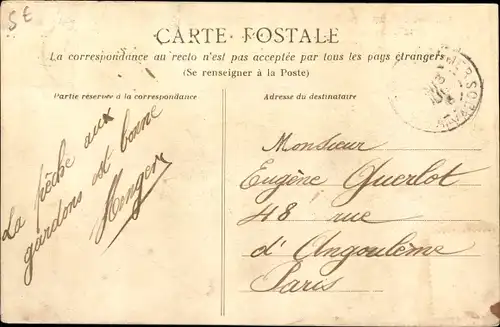 SE
CARTE POSTALE
La correspondance au recto n'est pas acceptée par tous les pays étrangers
(Se renseigner à la Poste)
Partie réservée à la correspondance
Adresse du destinataire
La pêche aux
gardons est bonne
Menger
Monsieur
Eugène Querlot
48 rue
d'Angoulème
Paris